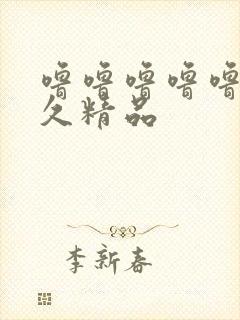 噜噜噜噜噜
久精品
李新春